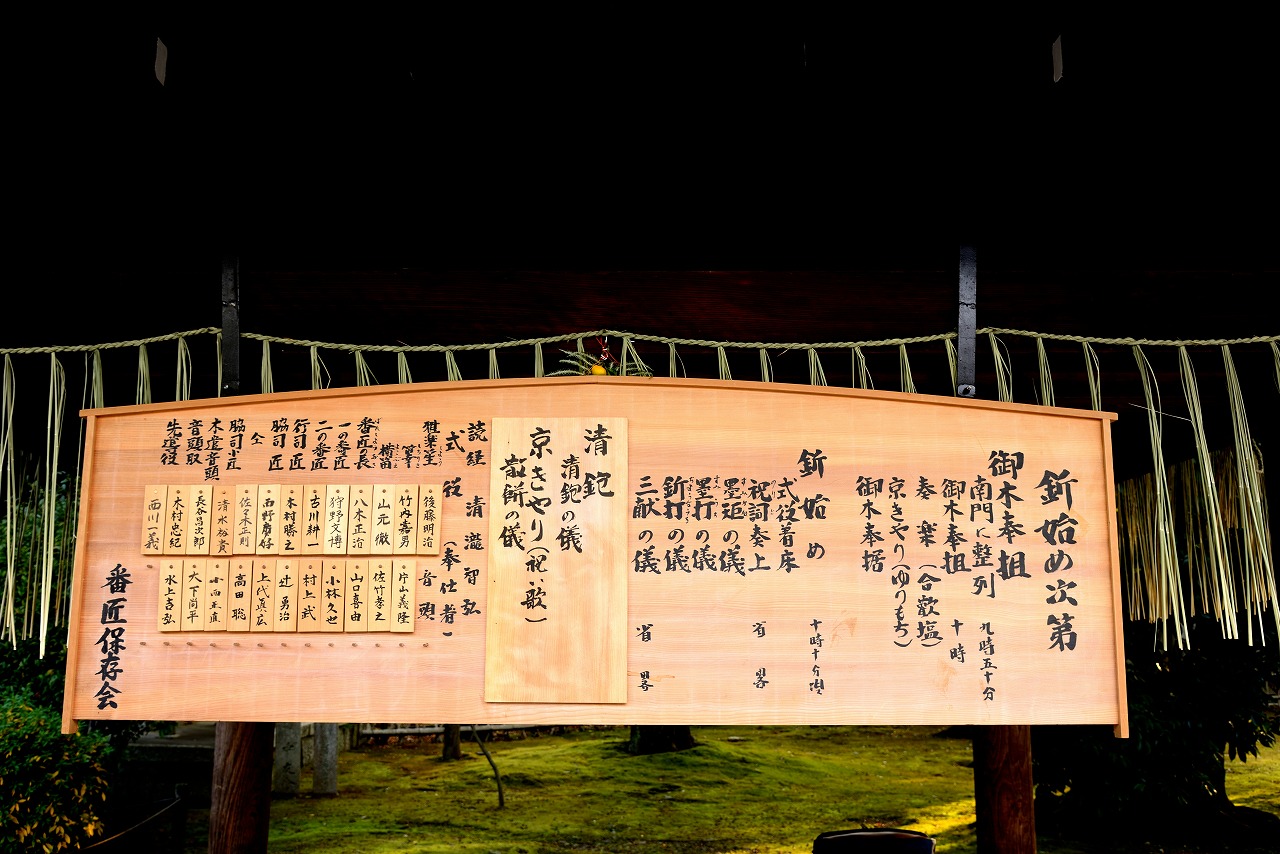 釿始め次第
御木奉搬
南門に整列 九時五十分
御木奉搬 十時
奏楽(合歓塩)
京きやり(ゆりもち)
御木奉据
釿始め 十時十分
式役着床
祝詞奏上 省略
墨矩の儀
墨打の儀
釿打の儀
三献の儀 省略
清鉋
清鉋の儀
京きやり(祝い歌)
散餅の儀
読経 清瀧智弘
式役(奉仕者)
雅楽 笙 後藤明治 音頭 片山義隆
竹内嘉男 佐竹孝之
横笛 山元徹 山口喜由
番匠の長 八木正治 小林久也
一の番匠 狩野久博 村上武
二の番匠 古川耕一 辻勇治
行司匠 木村勝之 上代眞広
脇司匠 西野庸好 高田聡
仝 佐々木正則 小西正直
脇司小匠 清水裕貴 大下尚平
木遣音頭 長谷昌次郎 水上吉弘
音頭取 木村忠紀
先導役 西川一義
番匠保存会